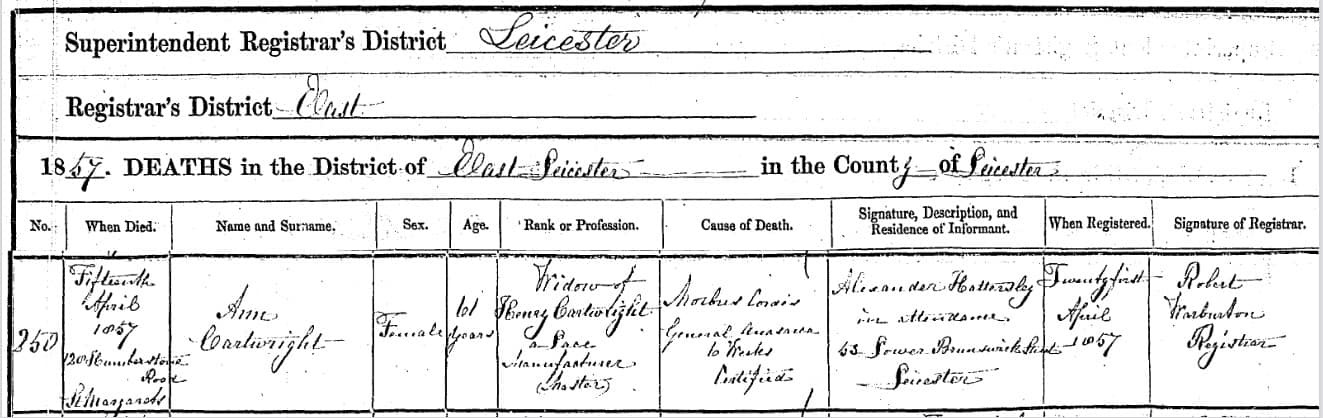 Superintendent Registrar's District Leicester
Registrar's District East
1857. DEATHS in the District of East Leicester in the County of Leicester
No. When Died. Name and Surname. Sex. Age. Rank or Profession. Cause of Death. Signature, Description, and Residence of Informant. When Registered. Signature of Registrar.
250
Fifteenth
April
1857
120 Humberstone
Road
St Margarets
Ann
Cartwright
Female
61
Years
Widow of
Henry Cartwright
a Lace
Manufacturer
(Master)
Morbus Cordis
General Anasarca
10 Weeks
Certified
Alexander Hattersley
in attendance
53 Lower Brunswick Street
Leicester
Twenty first
April
1857
Robert
Warburton
Registrar